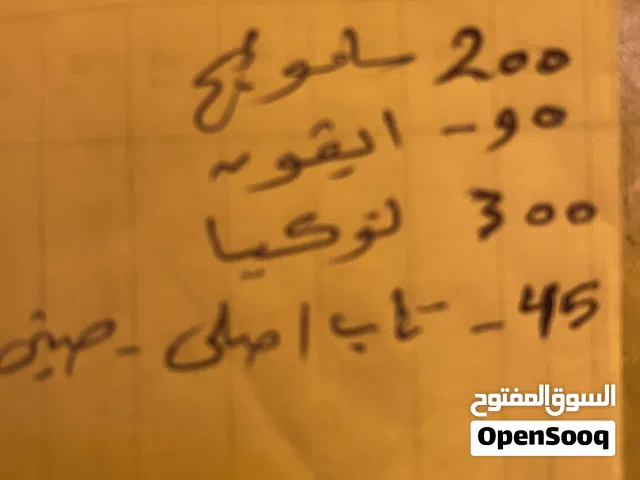 200 سامونج
90 - ايفون
300 نوكيا
45 - تاب اصلي - صيني
السوق المفتوح
OpenSooq